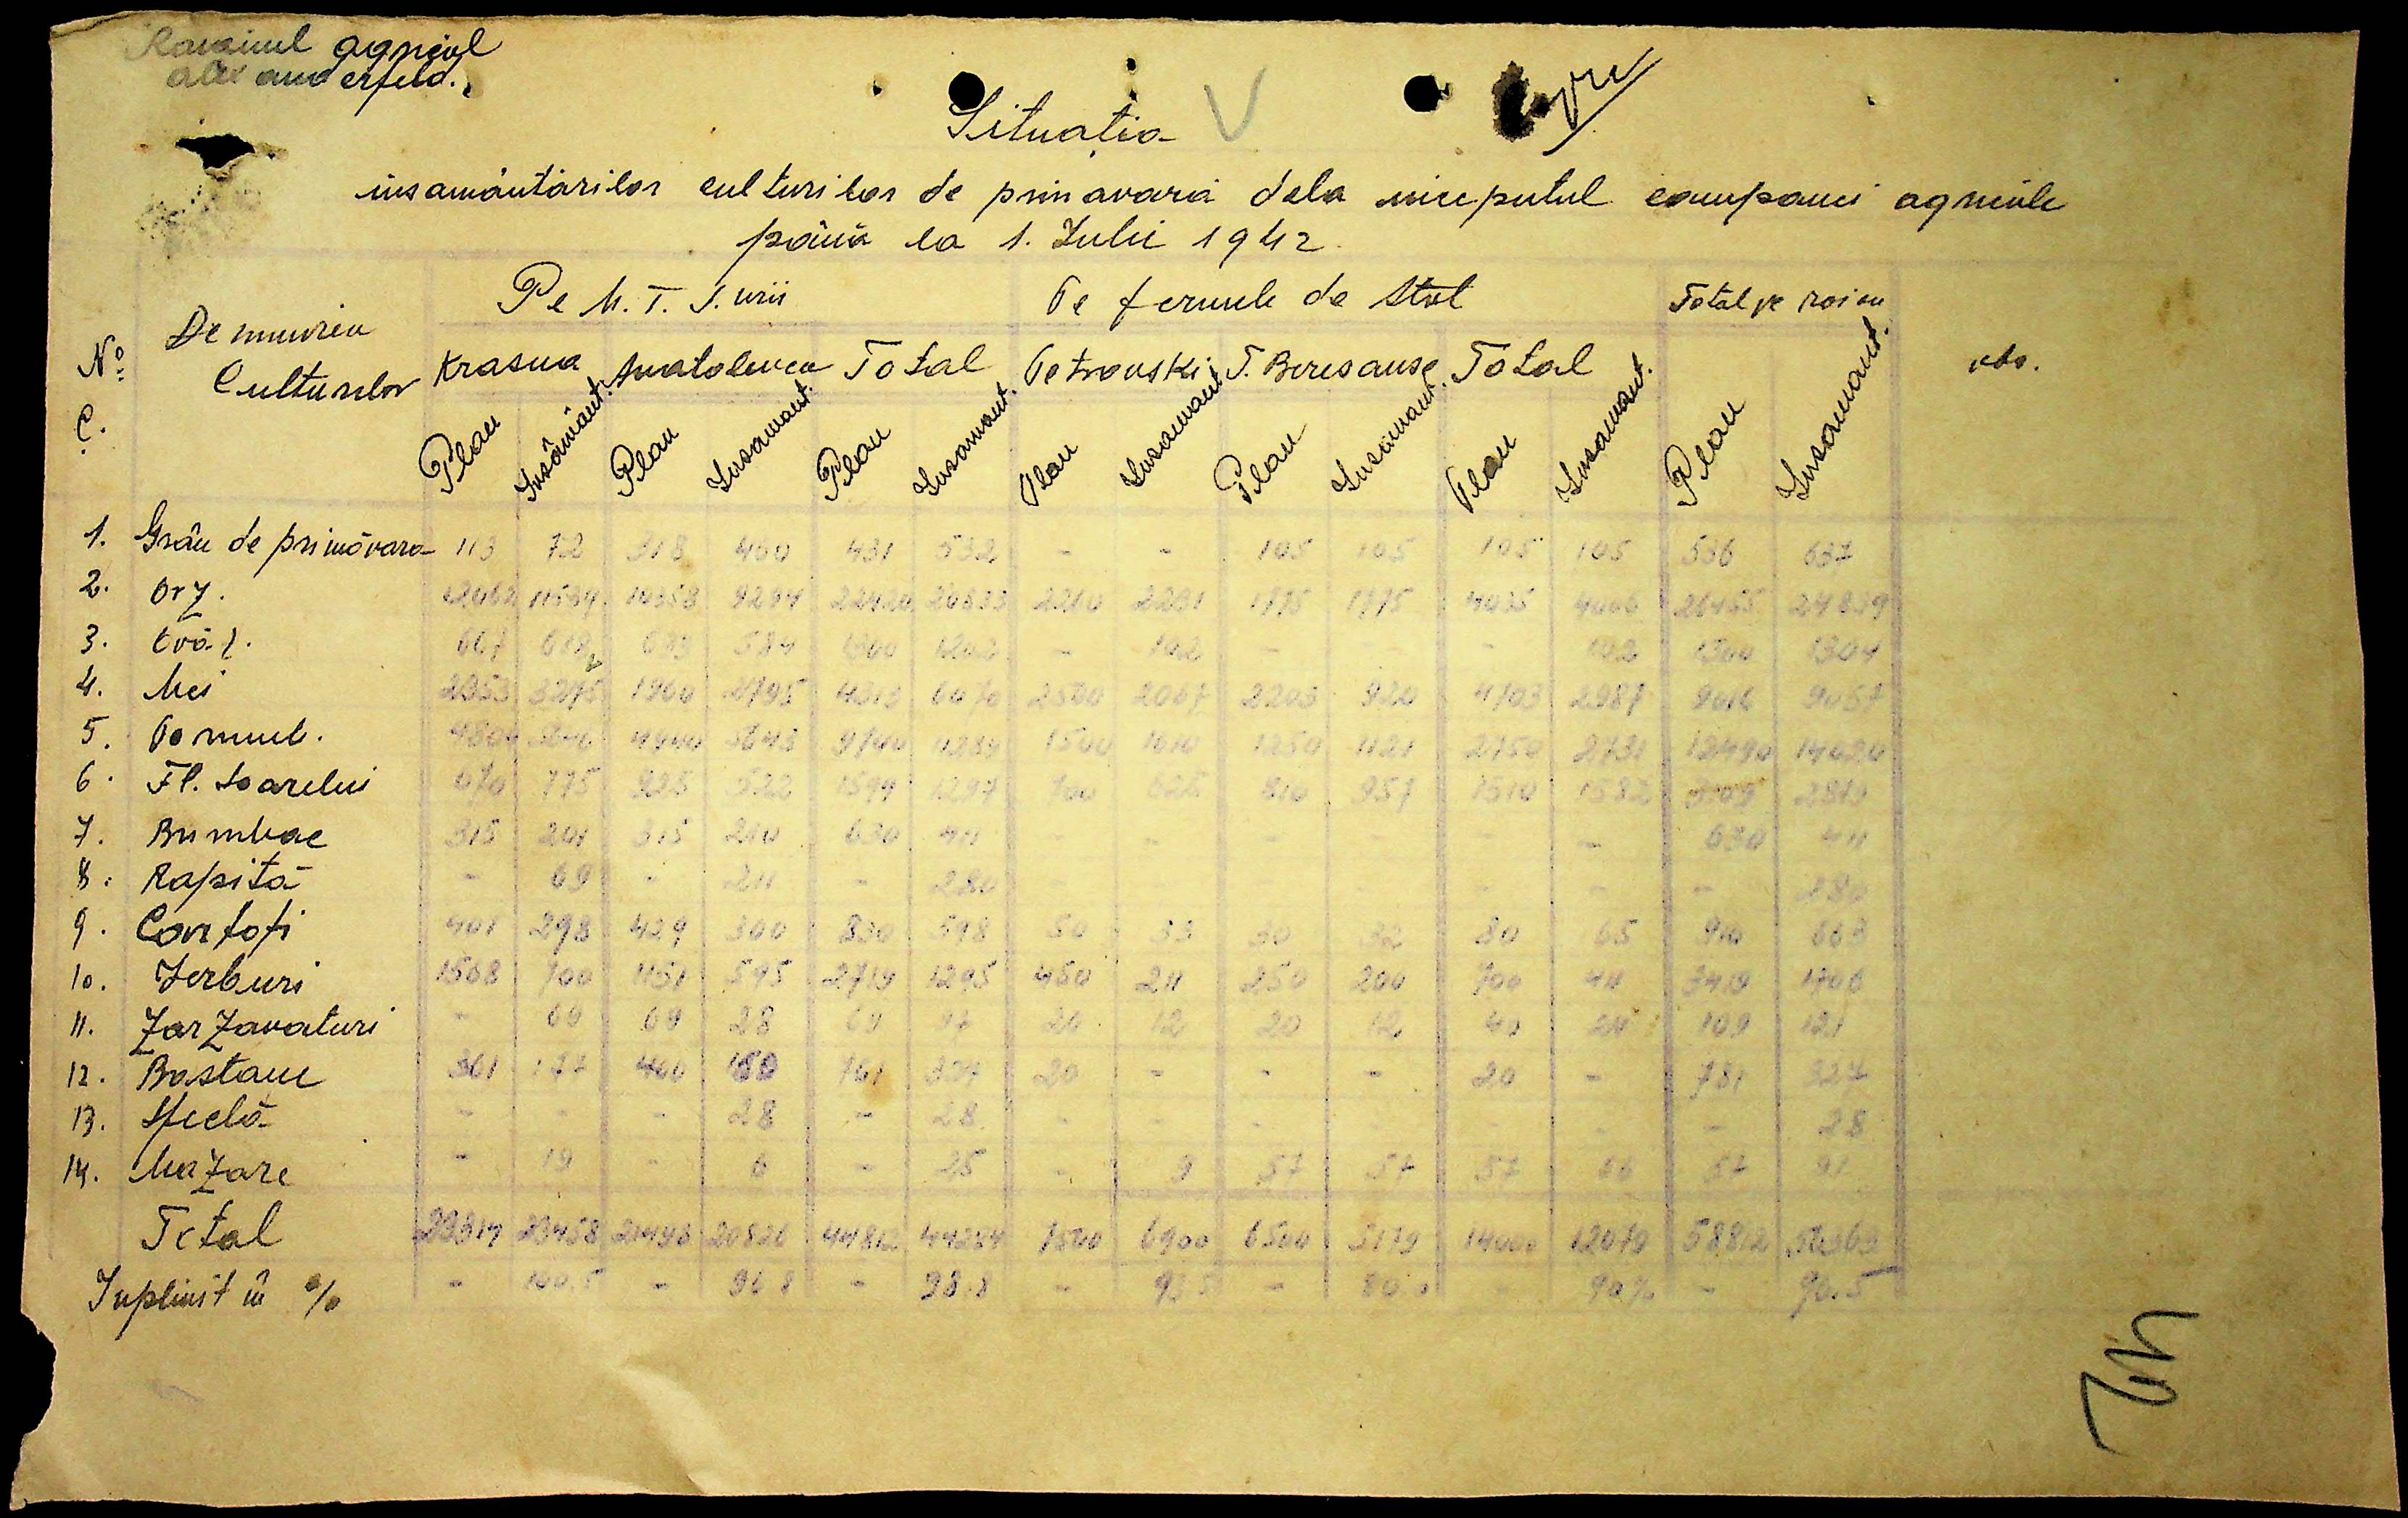 Raionul agricol
alexanderfeld.
Situația
insamântărilor culturilor de primavară dela inceputul companiei agricole
până la 1. Iulie 1942
No C. Denumirea Culturilor Pe M.T.S. urii Pe fermele de Stat Total pe raion obs.
Krasna Anatolievca Total Petrovski T. Beresansc. Total
Plan Insământ. Plan Insamant. Plan Insamant. Plan Insamant. Plan Insamant. Plan Insamant. Plan Insamant.
1. Grâu de primăvara 113 72 318 460 431 532 - - 105 105 105 105 536 637
2. Orz. 11594 9294 22420 2260 2231 1775 1775 4035 4006 26455 24839
3. Ovăz. 667 618 633 584 1300 1202 - 102 - - - 102 1300 1304
4. Mei 2353 3275 1960 2795 4313 6070 2500 2067 2203 920 4703 2987 9016 9057
5. Porumb. 4940 5643 9740 11289 1500 1610 1250 1121 2750 2731 12490 14020
6. Fl. Soarelui 670 775 925 522 1297 700 625 810 957 1510 1582 2879
7. Bumbac 315 201 315 210 630 411 - - - - - 630 411
8. Rapită - 69 - 211 - 280 - - - - - - - 280
9. Cartofi 401 298 429 300 830 598 50 33 30 32 80 65 910 663
10. Ierburi 1568 700 1151 595 2719 1295 450 211 250 200 700 411 3419 1706
11. Zarzavaturi - 69 69 28 69 97 20 12 20 12 40 24 109 121
12. Bostane 361 177 400 150 761 327 20 - - - 20 - 781 327
13. Sfeclă - - - 28 - 28 - - - - - - - 28
14. Mazare - 19 - 6 - 25 - 9 57 57 57 66 57 91
Total 23314 23458 21498 20826 44812 44284 7500 6900 6500 5179 14000 12079 58812 56363
Inplinit în % - 100.5 - 96.8 - 98.8 - - 80.0 - 90% - 90.5
42